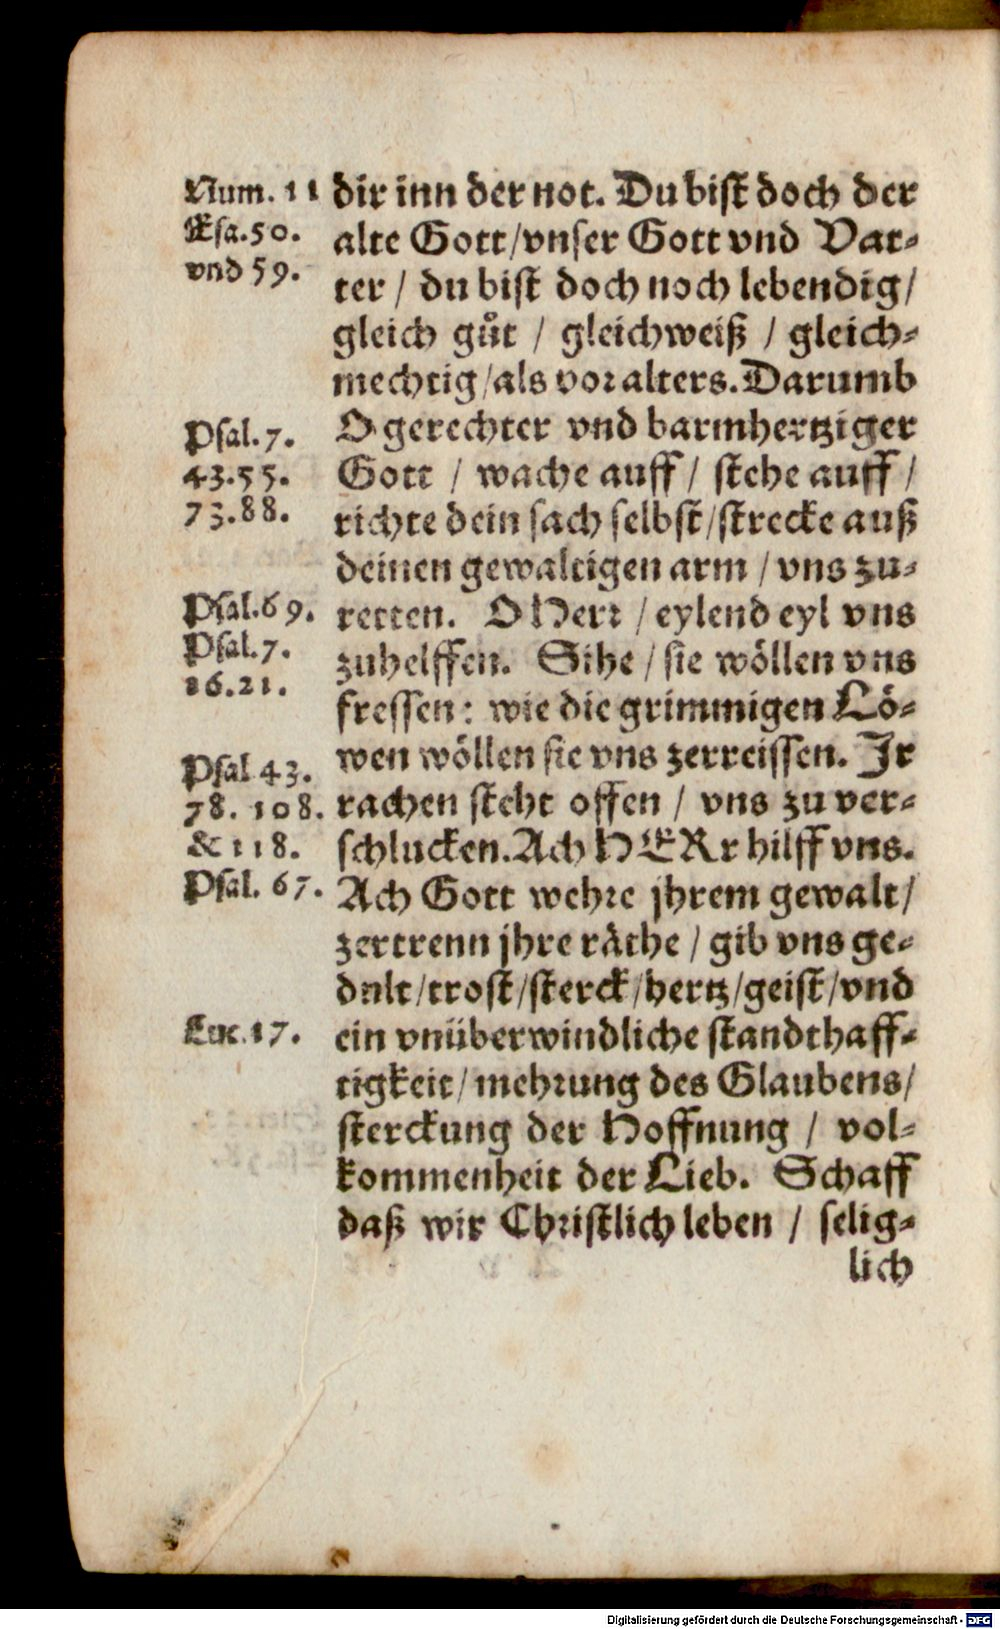 Num. 11
Esa. 50.
vnd 59.
Psal. 7.
43. 55.
73. 88.
Psal. 69.
Psal. 7.
16. 21.
Psal 43.
78. 108.
& 118.
Psal. 67.
Luc. 17.
dir inn der not. Du bist doch der
alte Gott / vnser Gott vnd Vat-
ter / du bist doch noch lebendig /
gleich gůt / gleichweiß / gleich-
mechtig / als vor alters. Darumb
O gerechter vnd barmhertziger
Gott / wache auff / stehe auff /
richte dein sach selbst / strecke auß
deinen gewaltigen arm / vns zu-
retten. O Herr / eylend eyl vns
zuhelffen. Sihe / sie wöllen vns
fressen: wie die grimmigen Lö-
wen wöllen sie vns zerreissen. Ir
rachen steht offen / vns zu ver-
schlucken. Ach HERr hilff vns.
Ach Gott wehre jhrem gewalt /
zertrenn jhre räthe / gib vns ge-
dult / trost / sterck / hertz / geist / vnd
ein vnüberwindliche standthaff-
tigkeit / mehrung des Glaubens /
sterckung der Hoffnung / vol-
kommenheit der Lieb. Schaff
daß wir Christlich leben / selig-
lich
Digitalisierung gefördert durch die Deutsche Forschungsgemeinschaft - DFG